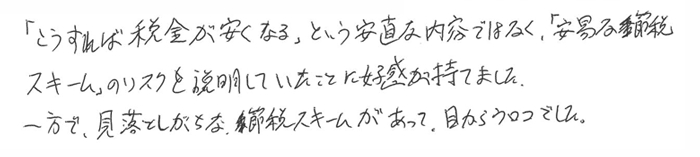 「こうすれば税金が安くなる」という安直な内容ではなく、「安易な節税
スキーム」のリスクを説明していたことに好感が持てました。
一方で、見落としがちな、節税スキームがあって、目からウロコでした。